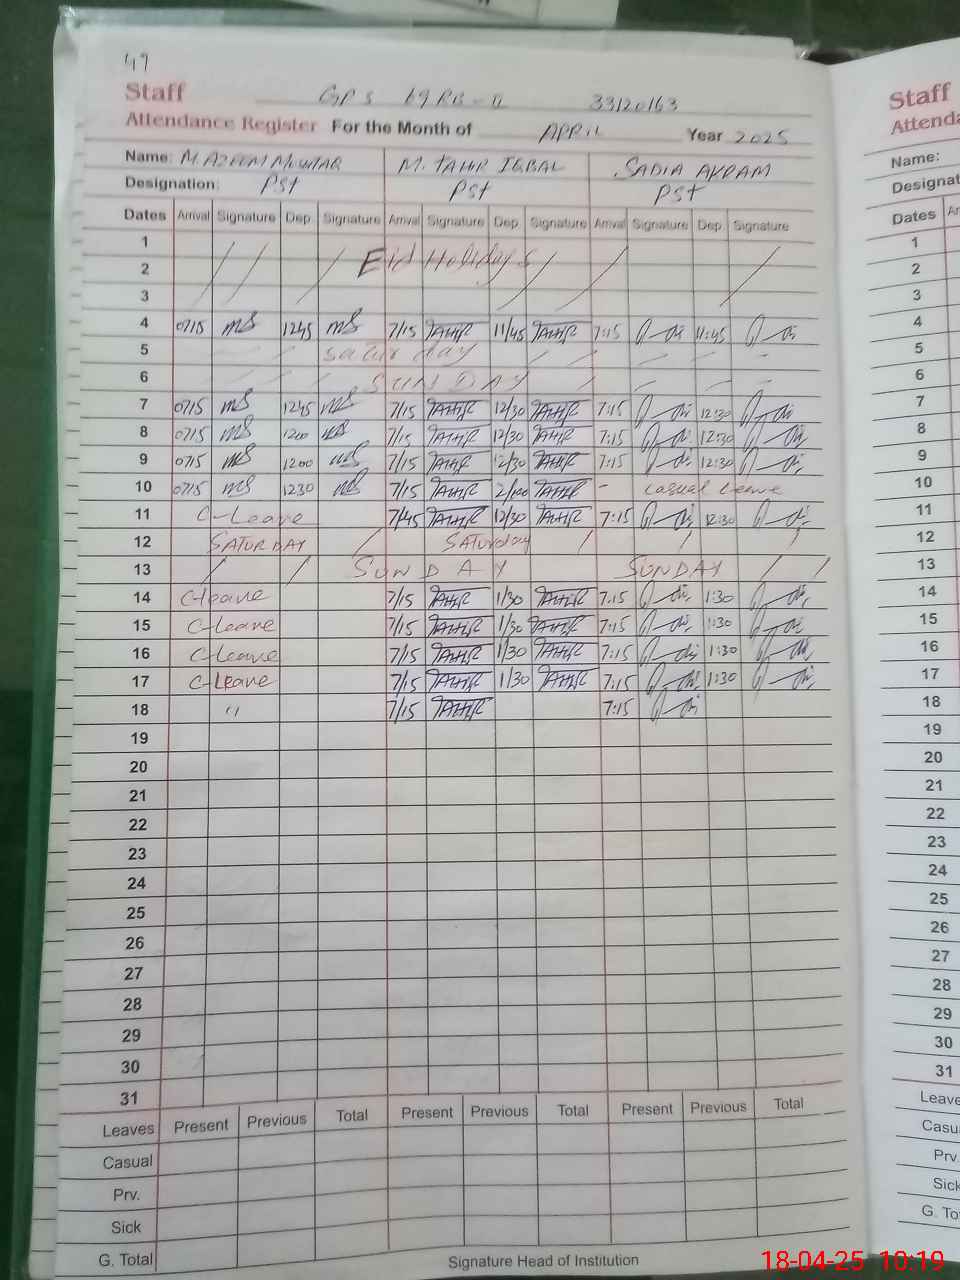 49
Staff GPS 69 RB-II 33120163 Staff
Attendance Register For the Month of APRIL Year 2025 Attenda
Name: M. AZEEM MUSHTAQ M. TAHIR IQBAL SADIA AKRAM Name:
Designation: PSt PSt PSt Designat
Dates Arrival Signature Dep. Signature Arrival Signature Dep. Signature Arrival Signature Dep. Signature Dates
1 1
2 Eid Holidays 2
3 3
4 0715 MS 1245 MS 7/15 TAHIR 11/45 TAHIR 7:15 11:45 4
5 Saturday 5
6 SUNDAY 6
7 0715 MS 1245 MS 7/15 TAHIR 12/30 TAHIR 7:15 12:30 7
8 0715 MS 1200 MS 7/15 TAHIR 12/30 TAHIR 7:15 12:30 8
9 0715 MS 1200 MS 7/15 TAHIR 12/30 TAHIR 7:15 12:30 9
10 0715 MS 1230 MS 7/15 TAHIR TAHIR - casual Leave 10
11 C-Leave 7/45 TAHIR 12/30 TAHIR 7:15 12:30 11
12 SATURDAY SATURday 12
13 SUNDAY SUNDAY 13
14 C-leave 7/15 TAHIR 1/30 TAHIR 7:15 1:30 14
15 C-Leave 7/15 TAHIR 1/30 TAHIR 7:15 1:30 15
16 C-Leave 7/15 TAHIR 1/30 TAHIR 7:15 1:30 16
17 C-Leave 7/15 TAHIR 1/30 TAHIR 7:15 1:30 17
18 " 7/15 TAHIR 7:15 18
19 19
20 20
21 21
22 22
23 23
24 24
25 25
26 26
27 27
28 28
29 29
30 30
31 31
Leaves Present Previous Total Present Previous Total Present Previous Total Leave
Casual Casu
Prv. Prv.
Sick Sick
G. Total G. To
Signature Head of Institution
18-04-25 10:19